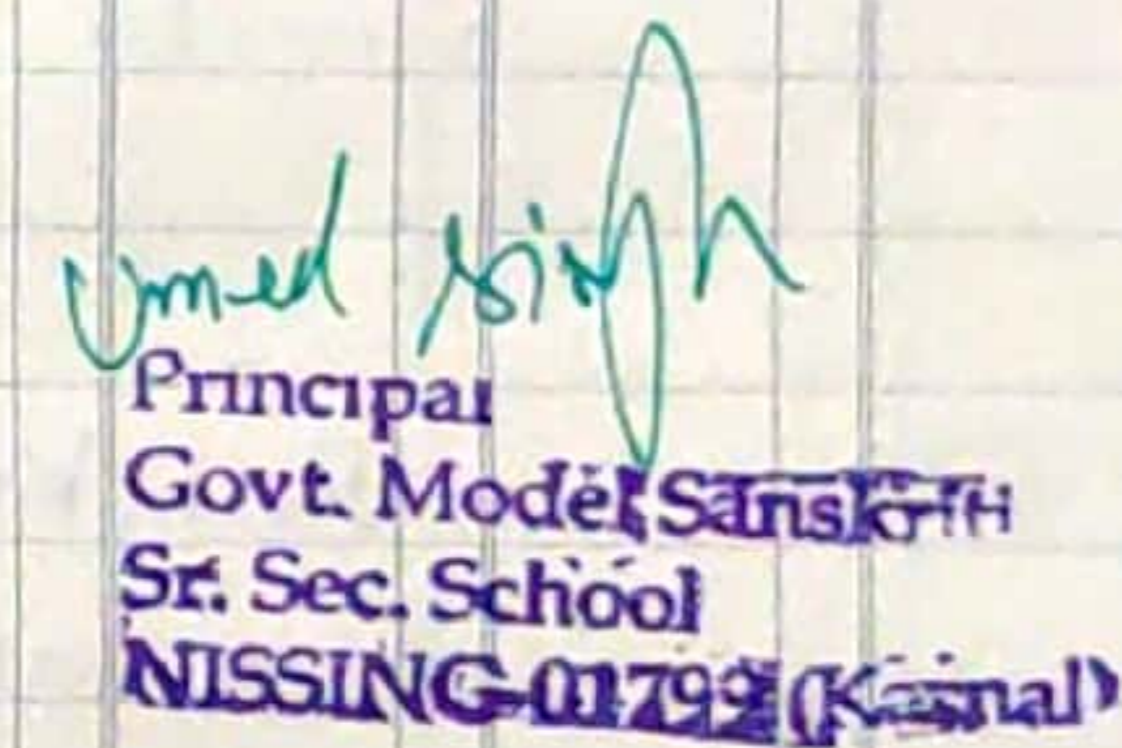 Umed Singh
Principal
Govt. Model Sanskriti
Sr. Sec. School
NISSING-01799 (Karnal)